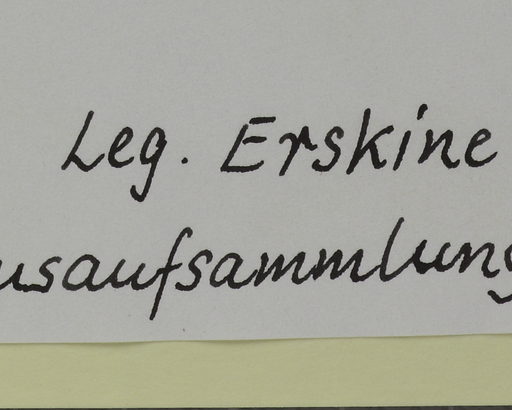 Leg. Erskine
usaufsammlung